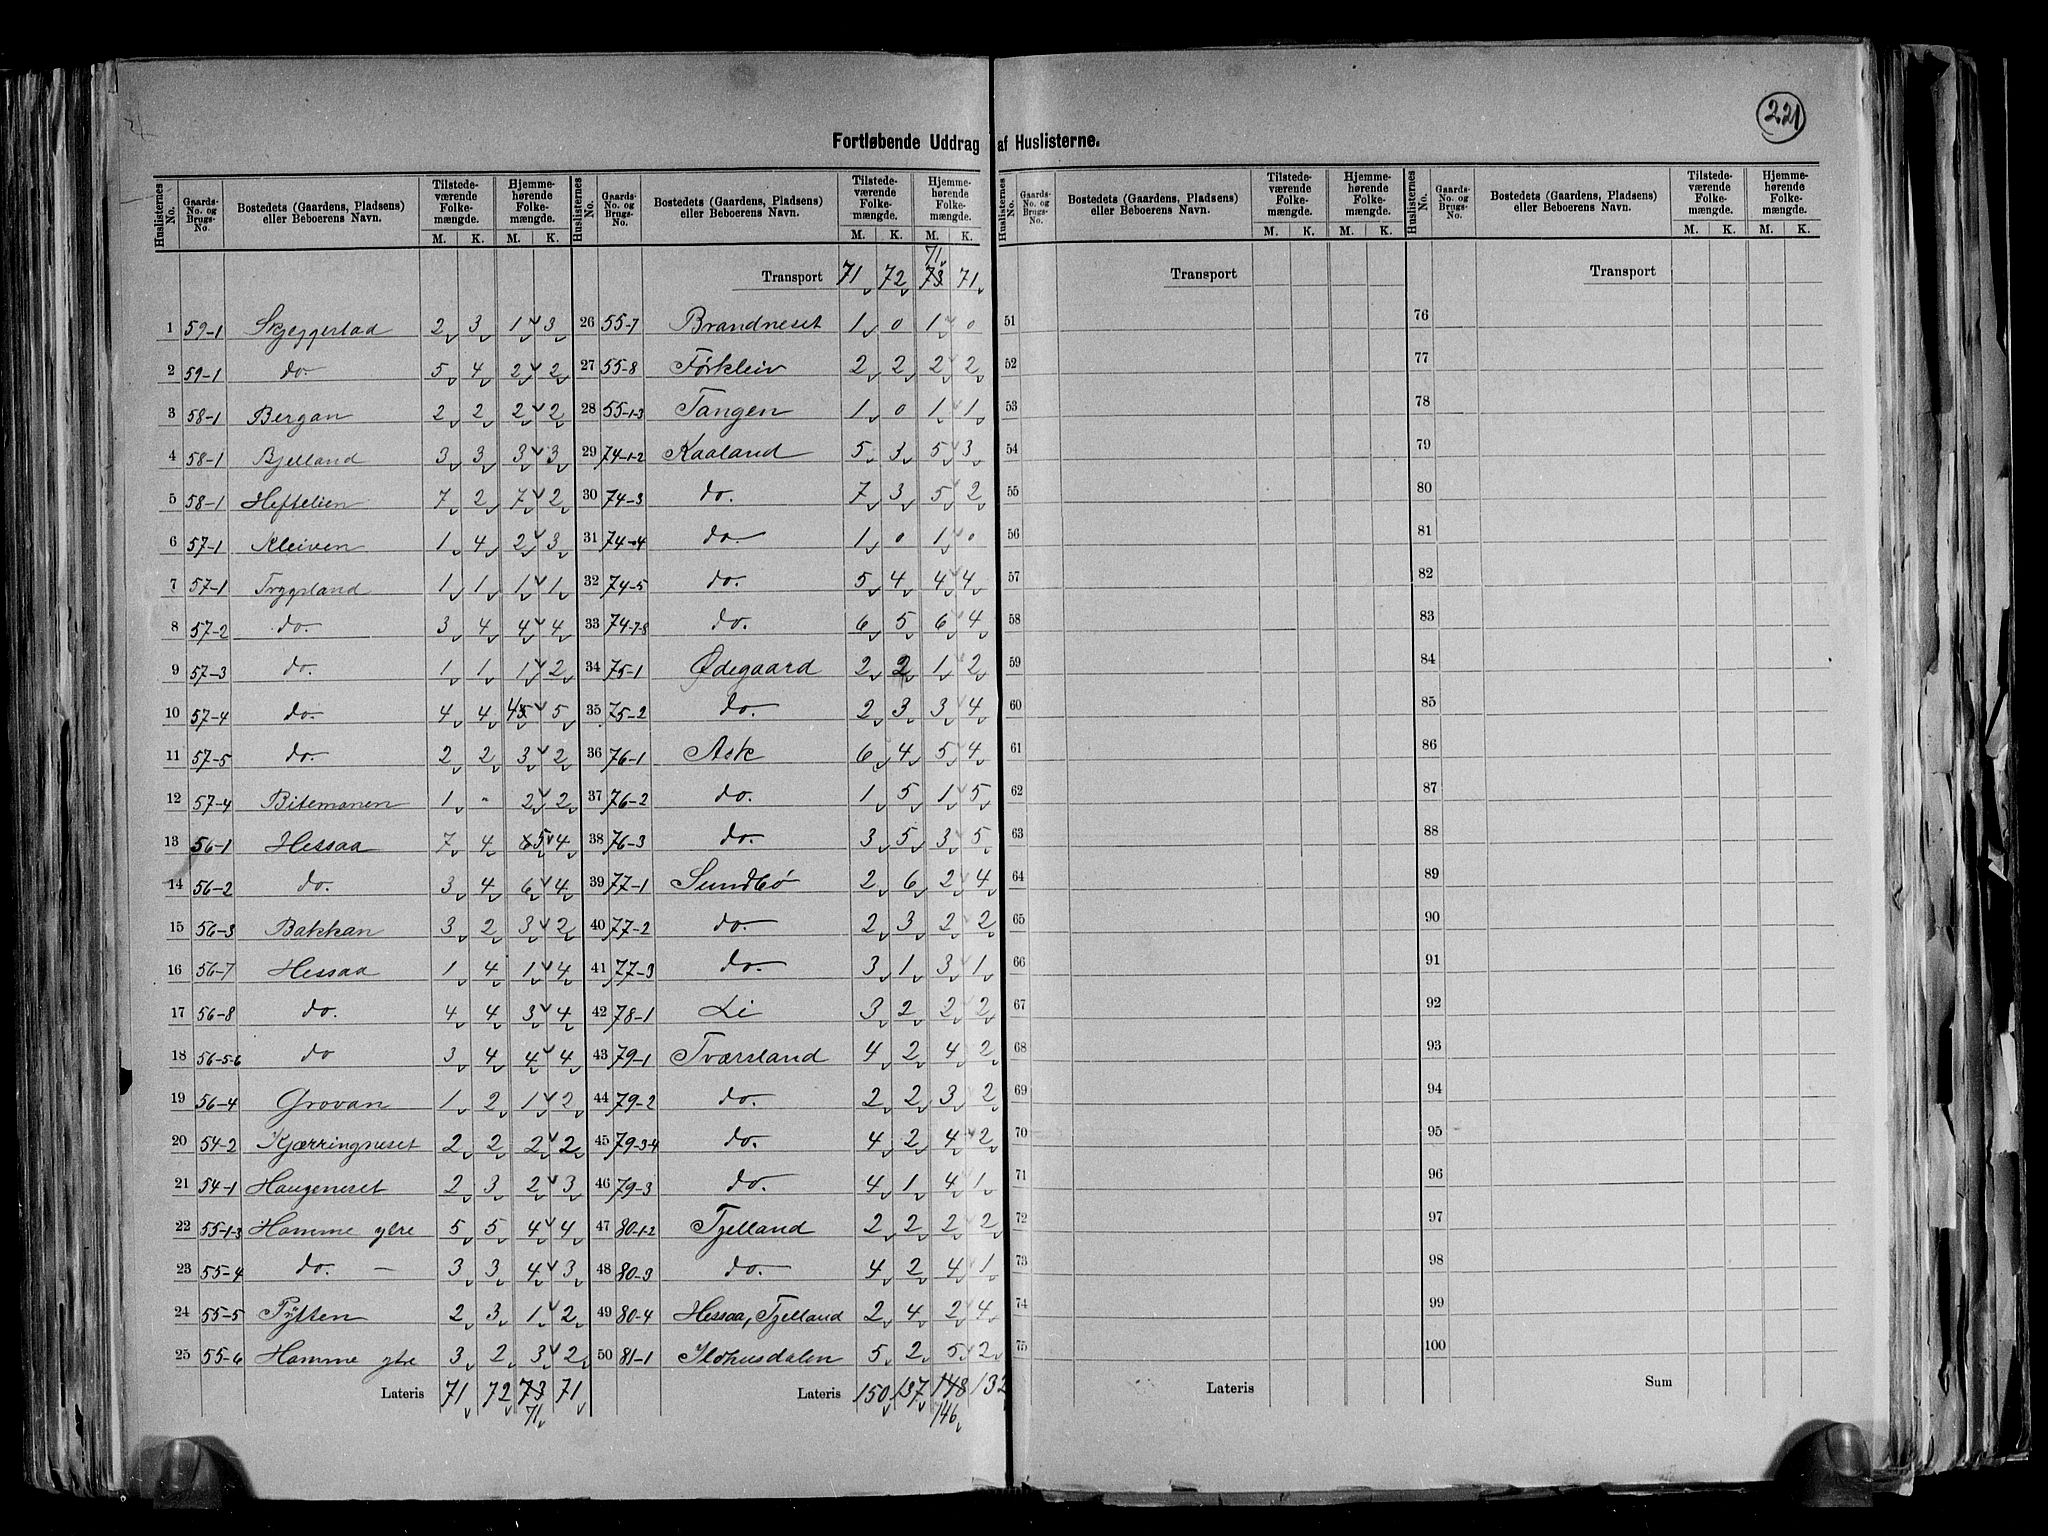 221
Fortløbende Uddrag af Huslisterne.
Huslisternes No. | Gaards-No. og Brugs-No. | Bostedets (Gaardens, Pladsens) eller Beboerens Navn. | Tilstedeværende Folkemængde. M. K. | Hjemmehørende Folkemængde. M. K.
1 59-1 Skjeggestad 2 3 1 3
2 59-1 do. 5 4 2 2
3 58-1 Bergan 2 2 2 2
4 58-1 Bjelland 3 3 3 3
5 58-1 Heftelien 7 2 7 2
6 57-1 Kleiven 1 4 2 3
7 57-1 Trygsland 1 1 1 1
8 57-2 do. 3 4 4 4
9 57-3 do. 1 1 1 2
10 57-4 do. 4 4 5
11 57-5 do. 2 2 3 2
12 57-4 Bitemonen 1 " 2 2
13 56-1 Hessaa 7 4 5 4
14 56-2 do. 3 4 6 4
15 56-3 Bakkan 3 2 3 2
16 56-7 Hessaa 1 4 1 4
17 56-8 do. 4 4 3 4
18 56-5-6 do 3 4 4 4
19 56-4 Grovan 1 2 1 2
20 54-2 Kjærringneset 2 2 2 2
21 54-1 Haugeneset 2 3 2 3
22 55-1-3 Homme ytre 5 5 4 4
23 55-4 do. — 3 3 4 3
24 55-5 Pytten 2 3 1 2
25 55-6 Homme ytre 3 2 3 2
Lateris 71 72 73 71
71
Huslisternes No. | Gaards-No. og Brugs-No. | Bostedets (Gaardens, Pladsens) eller Beboerens Navn. | Tilstedeværende Folkemængde. M. K. | Hjemmehørende Folkemængde. M. K.
71
Transport 71 72 73 71
26 55-7 Brandneset 1 0 1 0
27 55-8 Førkleiv 2 2 2 2
28 55-1-3 Tangen 1 0 1 1
29 74-1-2 Kaaland 5 3 5 3
30 74-3 do. 7 3 5 2
31 74-4 do. 1 0 1 0
32 74-5 do. 5 4 4 4
33 74-7-8 do. 6 5 6 4
34 75-1 Ødegaard 2 2 1 2
35 75-2 do. 2 3 3 4
36 76-1 Ask 6 4 5 4
37 76-2 do. 1 5 1 5
38 76-3 do. 3 5 3 5
39 77-1 Sundbø 2 6 2 4
40 77-2 do. 2 3 2 2
41 77-3 do. 3 1 3 1
42 78-1 Li 3 2 2 2
43 79-1 Tværsland 4 2 4 2
44 79-2 do. 2 2 3 2
45 79-3-4 do. 4 2 4 2
46 79-3 do. 4 1 4 1
47 80-1-2 Tjelland 2 2 2 2
48 80-3 do. 4 2 4 1
49 80-4 Hessaa, Tjelland 2 4 2 4
50 81-1 Ilohusdalen 5 2 5 2
Lateris 150 137 148 132
146
Huslisternes No. | Gaards-No. og Brugs-No. | Bostedets (Gaardens, Pladsens) eller Beboerens Navn. | Tilstedeværende Folkemængde. M. K. | Hjemmehørende Folkemængde. M. K.
Transport
51
52
53
54
55
56
57
58
59
60
61
62
63
64
65
66
67
68
69
70
71
72
73
74
75
Lateris
Huslisternes No. | Gaards-No. og Brugs-No. | Bostedets (Gaardens, Pladsens) eller Beboerens Navn. | Tilstedeværende Folkemængde. M. K. | Hjemmehørende Folkemængde. M. K.
Transport
76
77
78
79
80
81
82
83
84
85
86
87
88
89
90
91
92
93
94
95
96
97
98
99
100
Sum